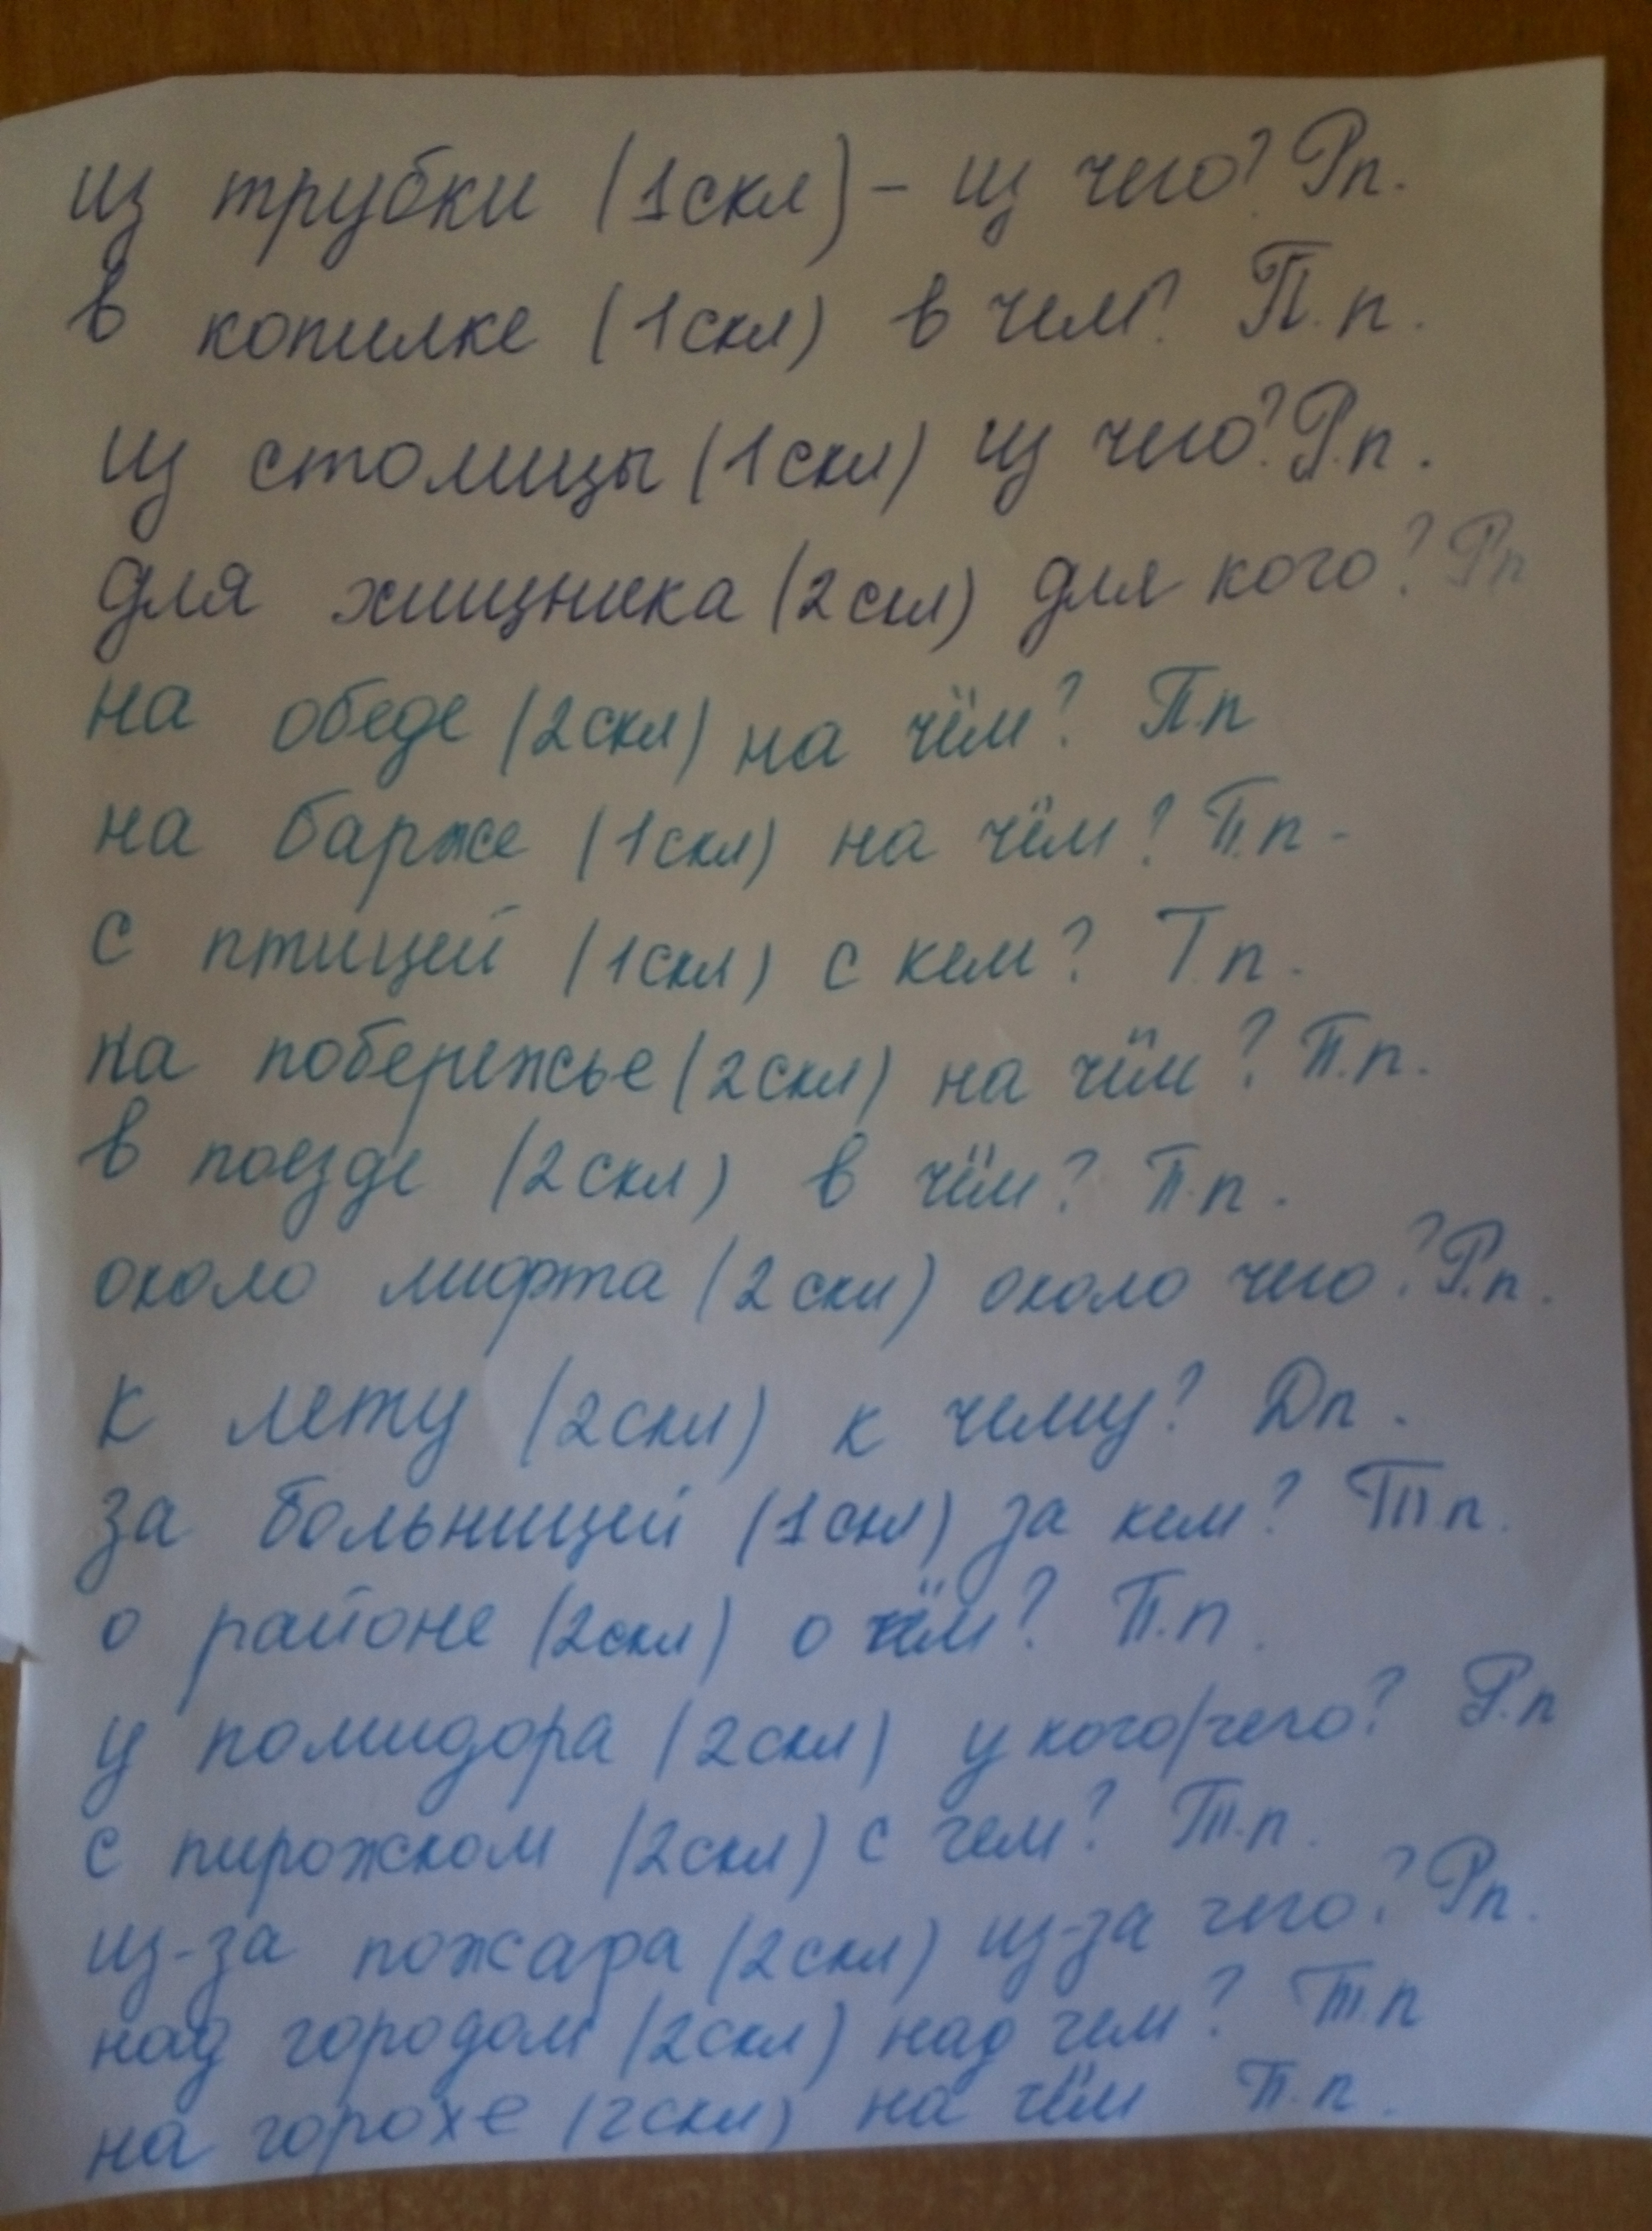 из трубки (1скл) - из чего? Рп.
в копилке (1скл) в чем? П.п.
из столицы (1скл) из чего? Р.п.
для хищника (2скл) для кого? Рп
на обеде (2скл) на чём? П.п
на барже (1скл) на чём? П.п-
с птицей (1скл) с кем? Т.п.
на побережье (2скл) на чём? П.п.
в поезде (2скл) в чём? П.п.
около лифта (2скл) около чего? Р.п.
к лету (2скл) к чему? Дп.
за больницей (1скл) за кем? Тп.
о районе (2скл) о чём? П.п.
у помидора (2скл) у кого/чего? Р.п
с пирожком (2скл) с чем? Т.п.
из-за пожара (2скл) из-за чего? Рп.
над городом (2скл) над чем? Т.п
на горохе (2скл) на чём П.п.